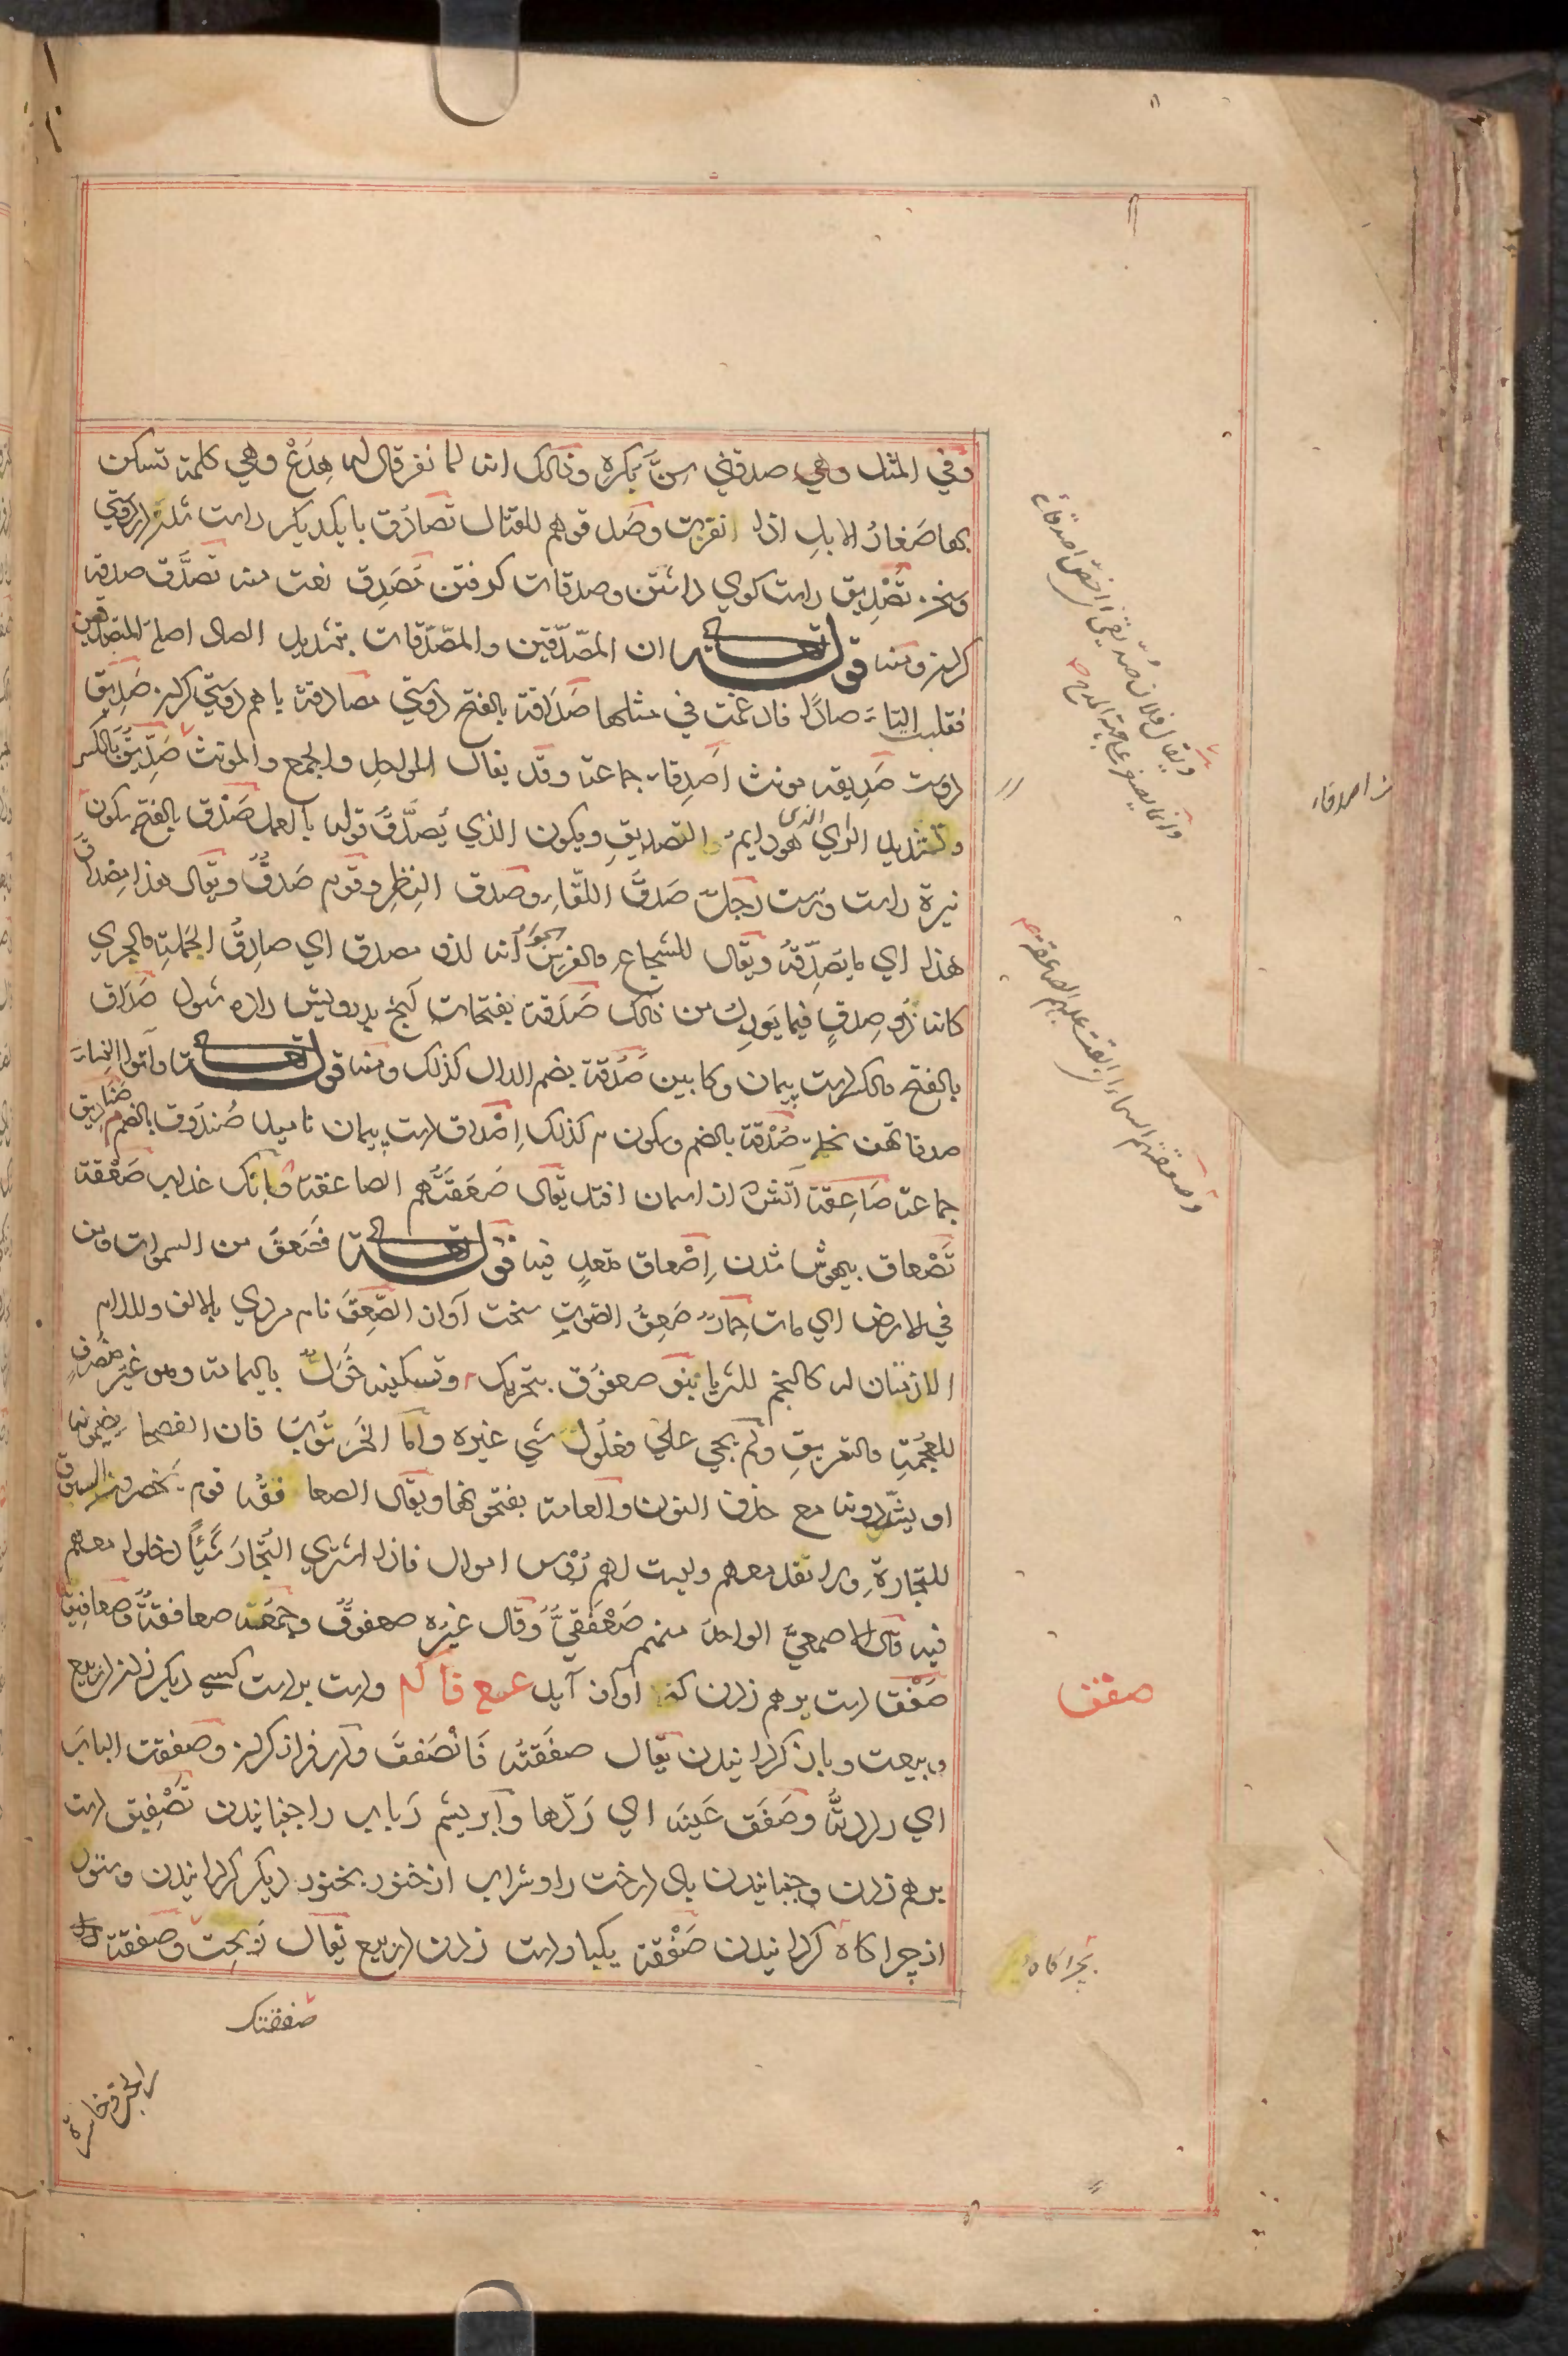 وفي المثل وهي صدقني سِنَّ بَكره وذلك انه لما نفر قال له هِدَعْ وهي كلمة تسكن
بها صَغارُ الابل اذا نفرت وصَدقوهم للقتال تَصادُق با يكديكر راست شدن در دوستي
وسخن تَصْدِيق راست كوي داشتن وصدقات كرفتن مُصَدِق نعت منه تَصَدَّق صدقه
كردن ومنه قوله تعالى ان المصّدّقين والمصّدّقات بتشديد الصاد اصله المتصدقين
فقلبت التاء صادًا فادغمت في مثلها صَدَاقة بالفتح دوستي مصادقة با هم دوستي كردن صَدِيق
دوست صَدِيقة مونث اَصدِقاء جماعة وقد يقال للواحد والجمع والمونث صِدِّيق بالكسر
وتشديد الدال الذي هو دايم التصديق ويكون الذي يُصَدِّقُ قوله بالعمل صَدْق بالفتح وسكون
نيزة راست ودرست رجل صَدقُ اللقاء وصدق النظر وقوم صَدقٌ ويقال هذا مصداق
هذا اي ما يُصَدِّقه ويقال للشجاع والفرس الجواد انه لذو مصدق اي صادِقُ الحَملة والجري
كانه ذو صِدقٍ فيما يَعِدك من ذلك صَدَقة بفتحات آنچ بدرويش داده شود صَداق
بالفتح والكسر دست پيمان وكابين صَدُقة بضم الدال كذلك ومنه قوله تعالى وآتوا النساء
صدقاتهن نحلة صُدْقة بالضم وسكون م كذلك اِصْداق دست پيمان ناميدن صُندُوق بالضم صَنادِيق
جماعة صَاعِقة آتش از اسمان افتد يقال صَعَقَتْهُم الصاعقة وبانك عذاب صَعْقة
تَصْعاق بيهوش شدن اِصْعاق متعدٍ فيه قوله تعالى فصَعِقَ من السموات ومن
في الارض اي مات حِمارٌ صَعِقُ الصَّوتِ سخت آواز الصَّعِقَ نام مردي بالالف واللام
اللازمتان له كالنجم للثريا بنو صعفُوق بتحريك وتسكينه خَوَلٌ باليمامة وهو غير منصرف
للعُجْمَةِ والتعريفِ ولم يجي علي فعلُول شي غيره واما الخَرنُوب فان الفصحا يضمونه
او يشدّدونه مع حذف النون والعامة يفتحونها ويقال الصعافقة قوم يحضرون السوق
للتجارة ولا نقد معهم وليست لهم رُؤس اموال فاذا اشتري التُّجّارُ شيئًا دخلوا معهم
فيه قال الاصمعيّ الواحد منهم صَعْفَقيٌّ وقال غيره صعفوقٌ وجمعه صعافقة وصعافيق
صَفْق دست برهم زدن كه اواز آيد عمع فا كم ودست بدست كسي ديكر زدن در بيع
وبيعت وباز كردانيدن يقال صفَقتُه فَانْصَفقَ ودر فراز كردن وصفقت البابَ
اي رددتُه وصَفَق عَينَه اي رَدّها وابريشم رباب را جنبانيدن تَصْفِيق دست
برهم زدن وجنبانيدن باد درخت را وشراب از خنور بخنور ديكر كردانيدن وستور
از چراكاه كردانيدن صَفْقة يكبار دست زدن در بيع يقال ربحت صفقتك
صفقتك
صفق
بچراكاه
اصدقاء